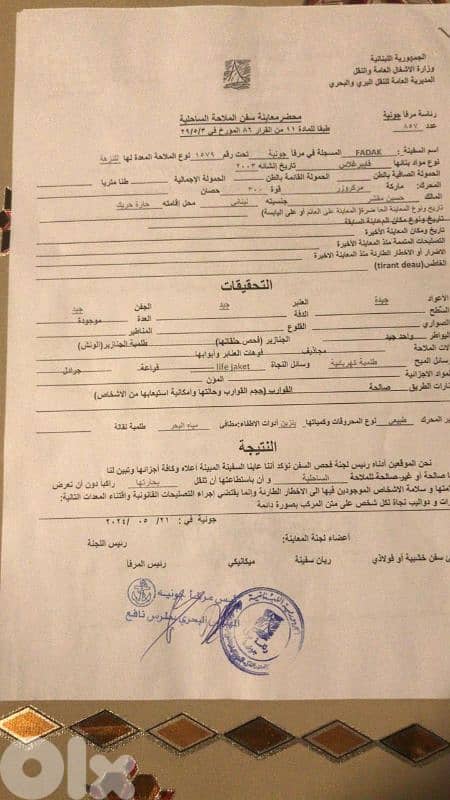 الجمهورية اللبنانية
وزارة الاشغال العامة والنقل
المديرية العامة للنقل البري والبحري
رئاسة مرفأ جونية
عدد ٨٥٧
محضر معاينة سفن الملاحة الساحلية
طبقا للمادة ١١ من القرار ٨٦ المؤرخ في ٢٩/٥/٣
اسم السفينة: FADAK المسجلة في مرفأ جونية تحت رقم ١٥٧٩ نوع الملاحة المعدة لها للنزهة
نوع مواد بنائها فايبرغلاس تاريخ انشائه ٢٠٠٣
الحمولة الصافية بالطن الحمولة القائمة بالطن الحمولة الإجمالية طنا متريا
المحرك: ماركة مركروزر قوة ٣٠٠ حصان
المالك حسين جنسيته لبناني محل إقامته حارة حريك
تاريخ ونوع المعاينة الحاضرة( المعاينة على المائم أو على اليابسة)
تاريخ ونوع مكان المعاينة السابقة
تاريخ ومكان المعاينة الأخيرة
التصليحات المتممة منذ المعاينة الأخيرة
الاضرار أو الاخطار الطارئة منذ المعاينة الاخيرة
الغاطس(tirant deau)
التحقيقات
الاعواد جيدة العنبر جيد الجفن جيد
السطح الدفة العدة موجودة
الصواري القلوع المناظير
البواطر واحد جيد الجنازير (فحص حلقاتها) طلمبة الجنازير(الونش)
لات الملاحة مجاذيف فوهات العنابر وأبوابها
سائل الميح طلمبة كهربائية وسائل النجاة life jaket قراعة. جرادل
المواد الاجزائية المؤن
نارات الطريق صالحة القوارب (حجم القوارب وحالتها وامكانية استيعابها من الاشخاص)
ير المحرك طبيعي نوع المحروقات وكمياتها بنزين أدوات الاطفاء:مطافئ مياه البحر طلمبة نقالة
النتيجة
نحن الموقعين أدناه رئيس لجنة فحص السفن نؤكد أننا عاينا السفينة المبينة أعلاه وكافة أجزائها وتبين لنا
ا صالحة أو غير صالحة للملاحة الساحلية و أن باستطاعتها أن تنقل بحارتها راكبا دون أن تعرض
متها و سلامة الاشخاص الموجودين فيها الى الاخطار الطارئة وإنما يقتضي إجراء التصليحات القانونية واقتناء المعدات التالية:
رات و دواليب نجاة لكل شخص على متن المركب بصورة دائمة
جونية في : ٢١/ ٠٥ /٢٠٢٤
أعضاء لجنة المعاينة: رئيس اللجنة
ي سفن خشبية أو فولاذي ربان سفينة ميكانيكي رئيس المرفأ
رئيس مرفأ جونيه
المهندس البحري بطرس نافع
OLX